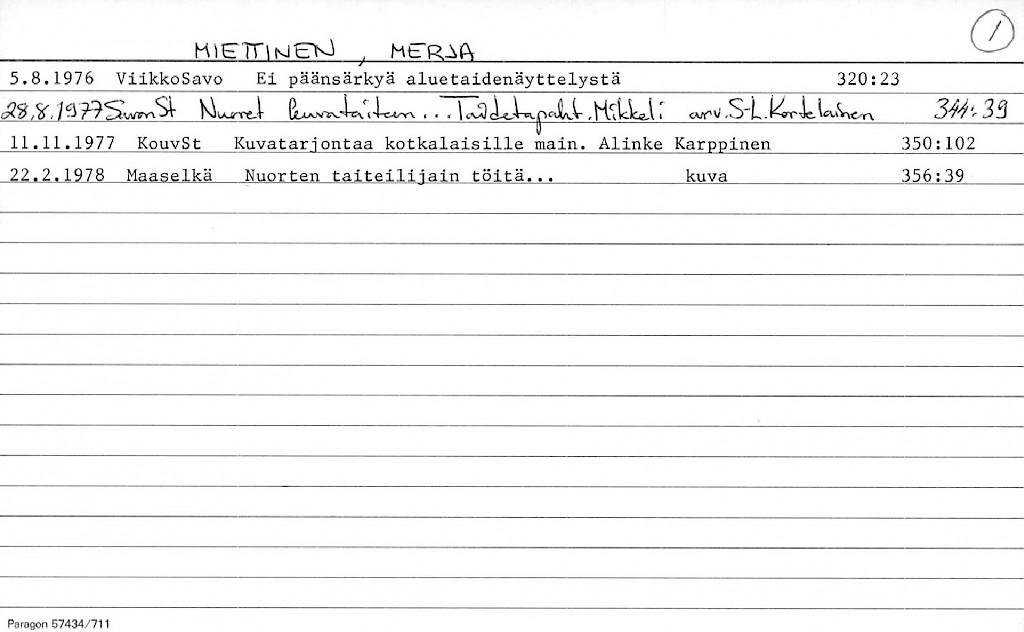 1
MIETTINEN, MERJA
5.8.1976 ViikkoSavo Ei päänsärkyä aluetaidenäyttelystä 320:23
28.8.1977 SuvonSt Nuoret kuvataiteen... Taidetapaht. Mikkeli arv. S-L. Kortelainen 344:39
11.11.1977 KouvSt Kuvatarjontaa kotkalaisille main. Alinke Karppinen 350:102
22.2.1978 Maaselkä Nuorten taiteilijain töitä... kuva 356:39
Paragon 57434/711